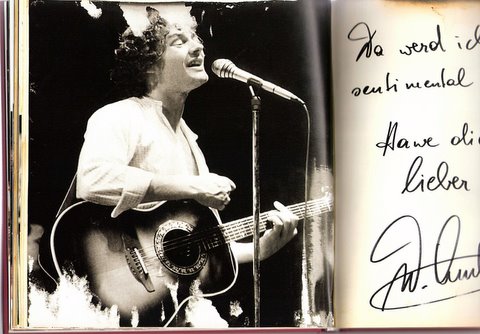 Da werd ich
sentimental
Hawe die
lieber